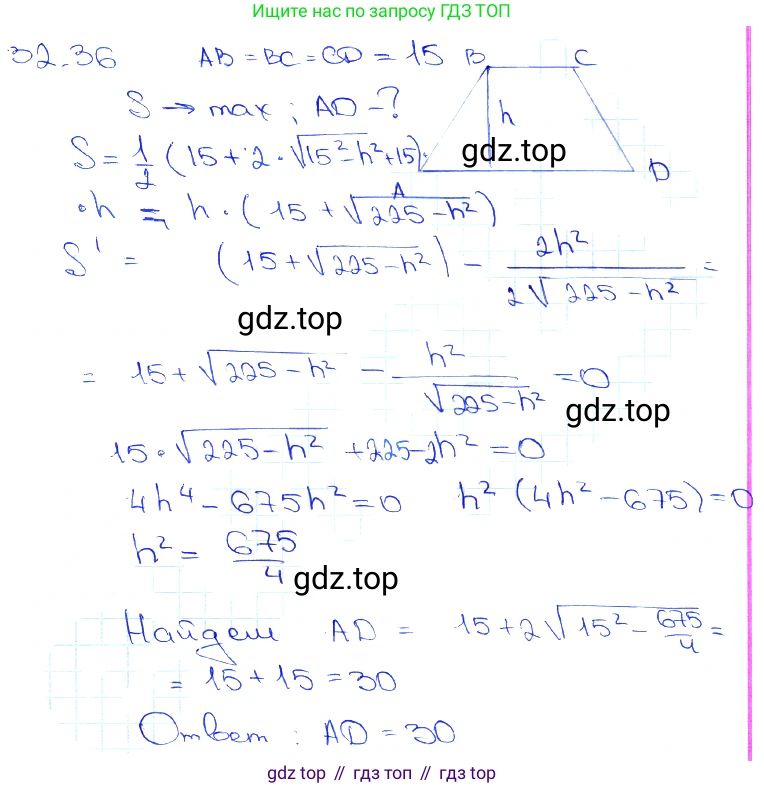 Ищите нас по запросу ГДЗ ТОП
32.36 AB = BC = CD = 15 B C
S → max ; AD - ?
h
S = 1/2 (15 + 2 · √(15² - h²) + 15) · gdz.top D
A
· h = h · (15 + √(225 - h²))
S' = (15 + √(225 - h²)) - 2h²/(2√(225 - h²)) =
gdz.top
= 15 + √(225 - h²) - h²/√(225 - h²) = 0
gdz.top
15 · √(225 - h²) + 225 - 2h² = 0
4h⁴ - 675h² = 0 h² (4h² - 675) = 0
h² = 675/4
gdz.top
Найдем AD = 15 + 2√(15² - 675/4) =
= 15 + 15 = 30
Ответ : AD = 30
gdz top // гдз топ // gdz top